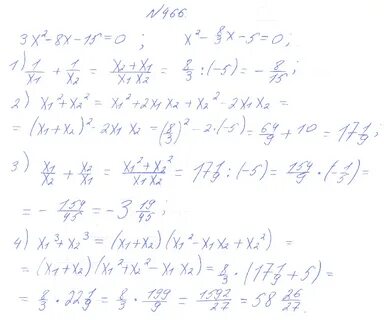 №466.
3x²-8x-15=0 ; x²-8/3x-5=0 ;
1) 1/x₁ + 1/x₂ = (x₂+x₁)/(x₁x₂) = 8/3 : (-5) = -8/15 ;
2) x₁²+x₂² = x₁²+2x₁x₂+x₂²-2x₁x₂ =
= (x₁+x₂)²-2x₁x₂ = (8/3)²-2·(-5) = 64/9 + 10 = 17 1/9 ;
3) x₁/x₂ + x₂/x₁ = (x₁²+x₂²)/(x₁x₂) = 17 1/9 : (-5) = 154/9 · (-1/5) =
= - 154/45 = -3 19/45 ;
4) x₁³+x₂³ = (x₁+x₂)(x₁²-x₁x₂+x₂²) =
= (x₁+x₂)(x₁²+x₂²-x₁x₂) = 8/3 · (17 1/9 + 5) =
= 8/3 · 22 1/9 = 8/3 · 199/9 = 1592/27 = 58 26/27 .